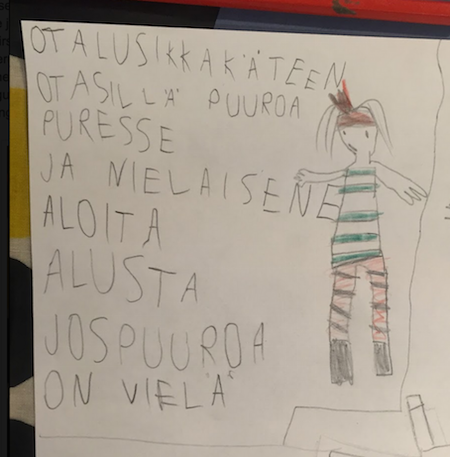 OTALUSIKKAKÄTEEN
OTASILLÄ PUUROA
PURESSE
JA NIELAISENE
ALOITA
ALUSTA
JOSPUUROA
ON VIELÄ